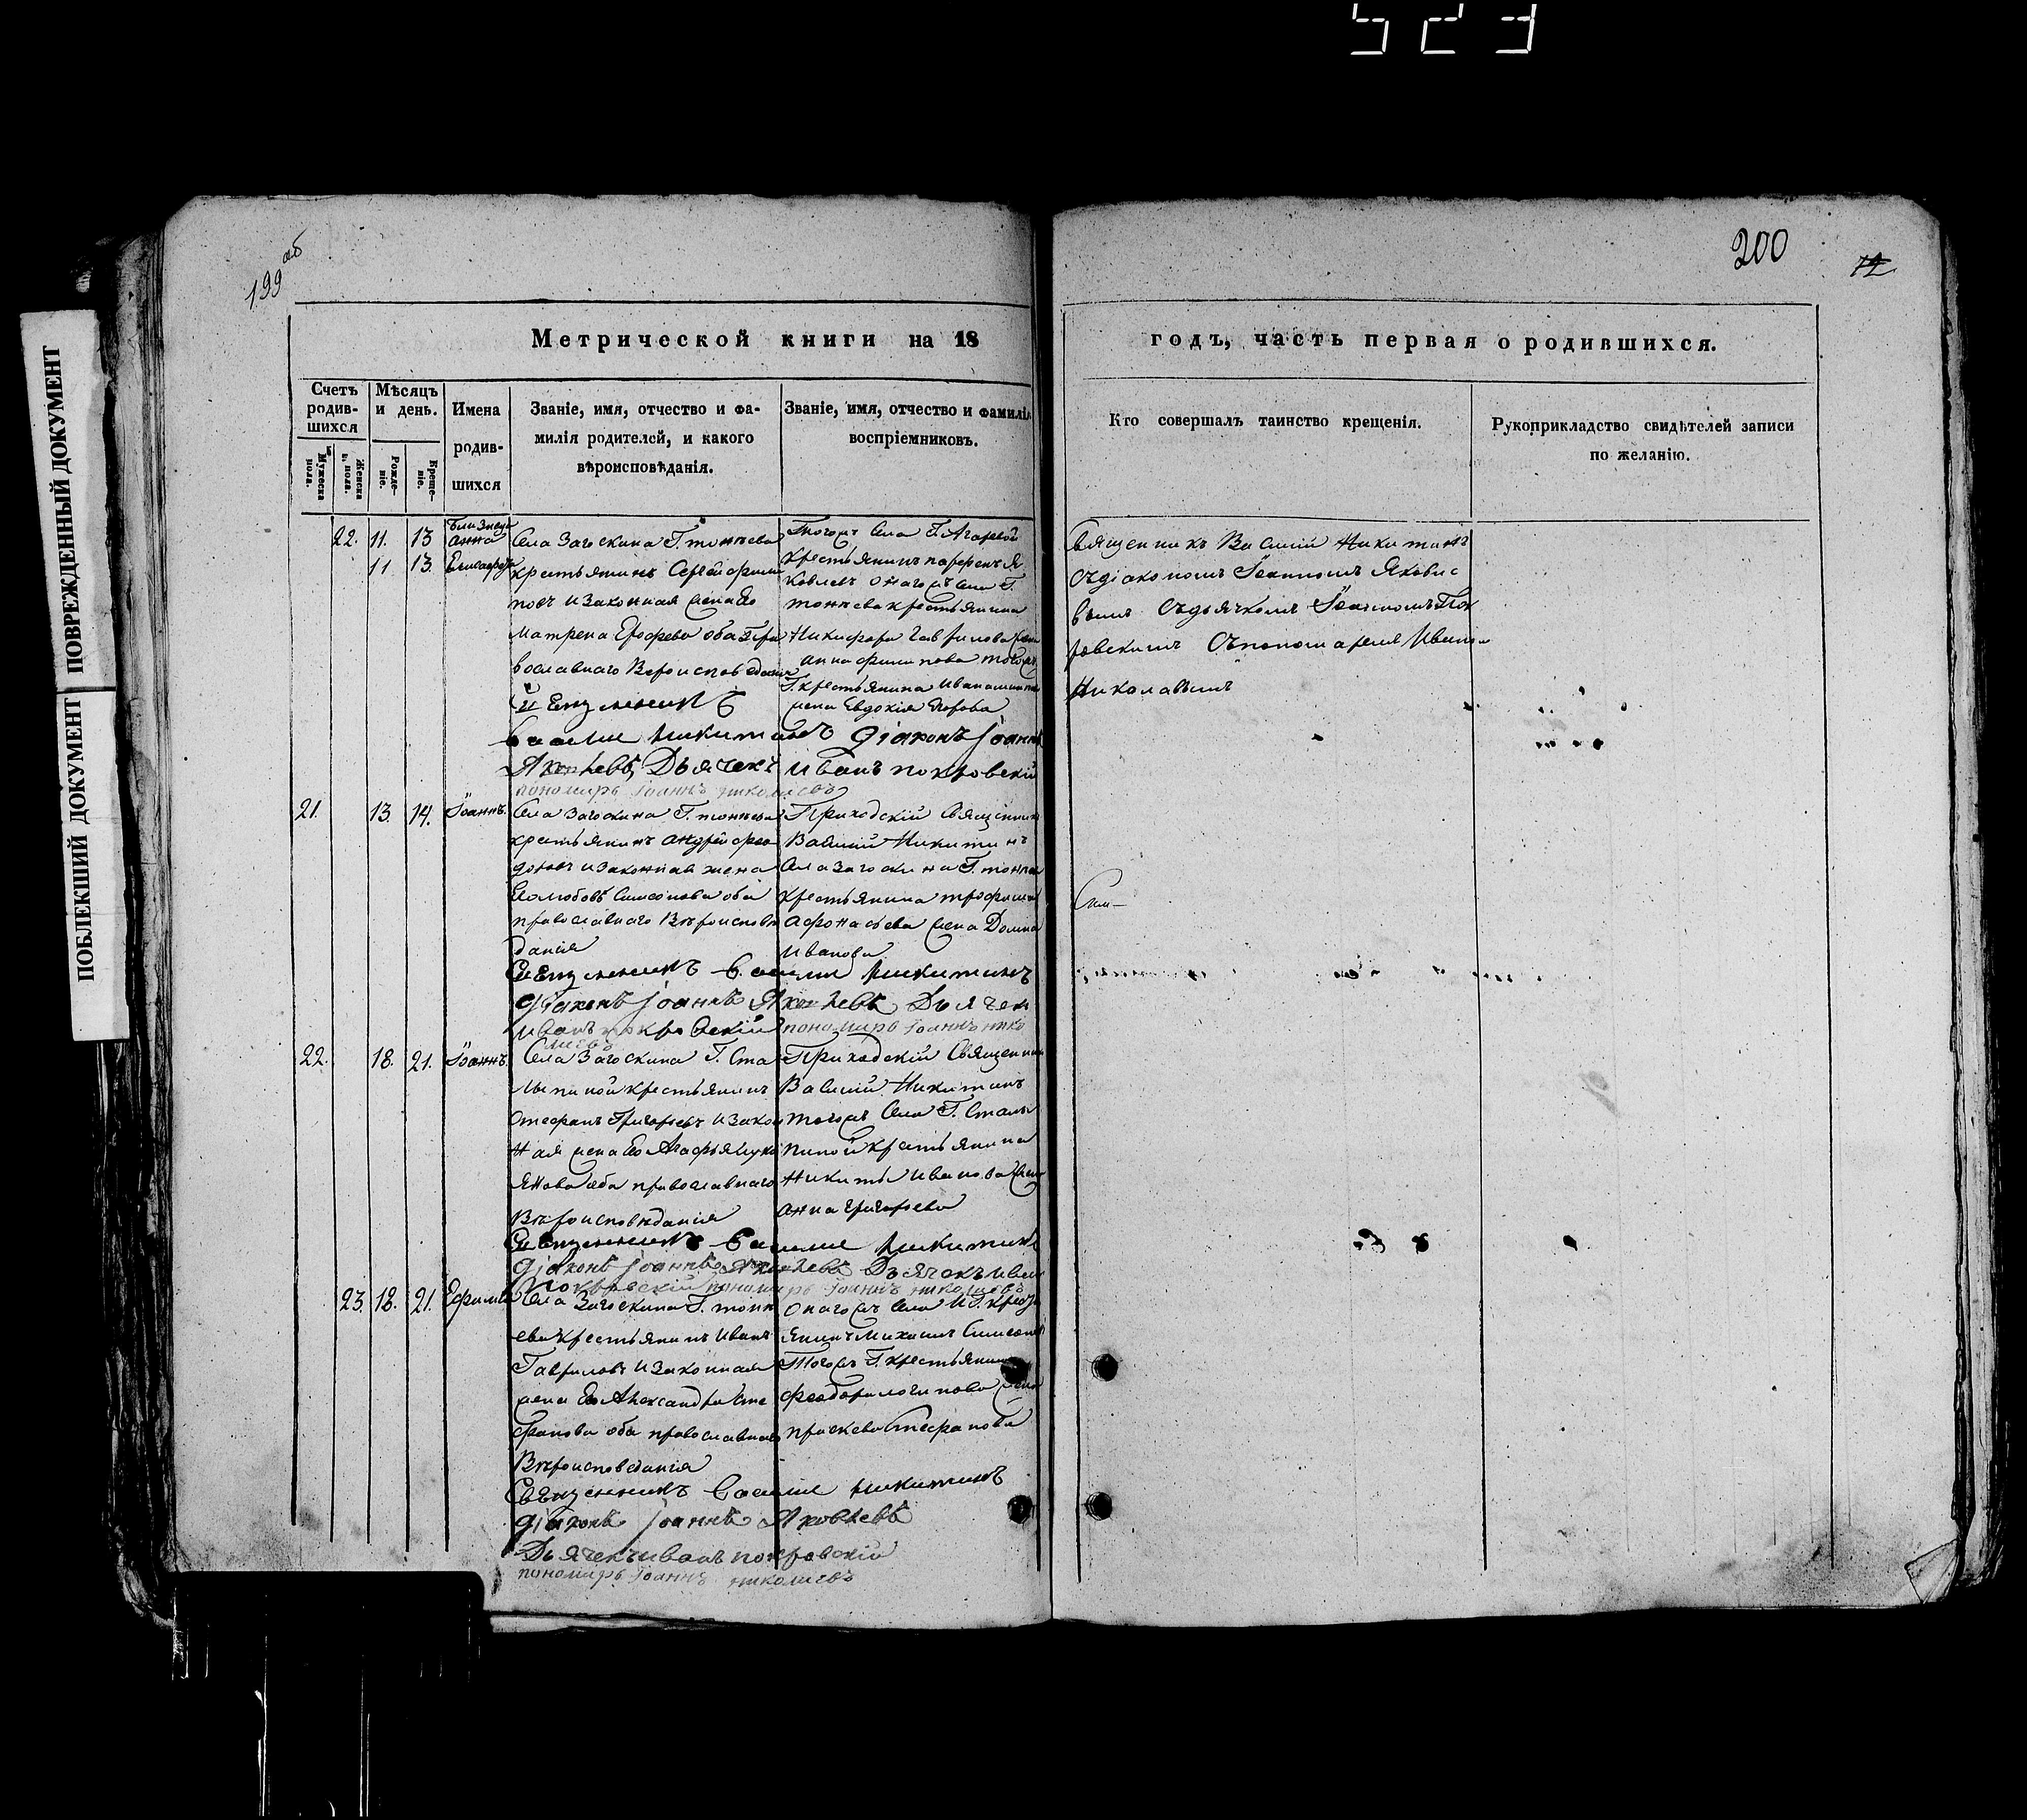 523
ПОБЛЕКШИЙ ДОКУМЕНТ
ПОВРЕЖДЕННЫЙ ДОКУМЕНТ
199 об
200
12
Метрической книги на 18
годъ, часть первая о родившихся.
Счетъ родив-шихся
Мужеска пола.
Женска пола.
Мѣсяцъ и день.
Рожде-ніе.
Креще-ніе.
Имена родив-шихся
Званіе, имя, отчество и фа-
милія родителей, и какого
вѣроисповѣданія.
Званіе, имя, отчество и фамилія
воспріемниковъ.
Кто совершалъ таинство крещенія.
Рукоприкладство свидѣтелей записи
по желанію.
22. 11. 13 Близнецы Анна
11 13. Елисавефа
Села Загоскина Г.
крестьянинъ Сергей Филип
повъ и законная жена Ево
Матрена Ерофеева оба Пра
вославнаго Вероисповедания
Тогожъ Села Г. Агаревой
крестьянинъ Парфенъ Я
ковлевъ онагожъ Села Г.
крестьянина
Никифора Гаврилова жена
Анна Филипова тогожъ
Г. крестьянина Ивана
жена Евдокия Егорова
Священникъ
Василий Никитинъ Діаконъ Іоаннъ
Яковлевъ Дьячекъ Иванъ Покровский
пономарь Іоаннъ Николаевъ
Священникъ Василий Никитинъ
Съдіакономъ Іоанномъ Яковле
вымъ Съдьячкомъ Іоанномъ Пок
ровскимъ Съпономаремъ Иваном
Николаевымъ
21. 13. 14. Іоаннъ.
Села Загоскина Г.
крестьянинъ Андрей Фео
доровъ и законная жена
Ево Любовь Симеонова оба
православнаго Вѣроисповѣ
дания
Приходский Священник
Василий Никитинъ
Села Загоскина Г.
крестьянина Трофима
Афонасьева жена Домна
Иванова
Священникъ Василий Никитинъ
діаконъ Іоаннъ Яковлевъ Дьячек
Иванъ Покровский пономарь Іоаннъ Нико
лаевъ
22. 18. 21. Іоаннъ.
Села Загоскина Г. Ста
лыпиной крестьянинъ
Стефанъ Григорьевъ и закон
ная жена Ево Агафья Луки
янова оба православнаго
Вѣроисповѣдания
Приходский Священник
Василий Никитинъ
тогожъ Села Г. Сталы
пиной крестьянина
Никиты Иванова жена
Анна Григорьева
Священникъ Василий Никитинъ
діаконъ Іоаннъ Яковлевъ Дьячекъ Иван
Покровский пономарь Іоаннъ Николаевъ
23. 18. 21. Ефимия
Села Загоскина Г.
крестьянинъ Иванъ
Гавриловъ и законная
жена Ево Александра Сте
фанова оба православнаго
Вѣроисповедания
онагожъ Села И Г. кресть
янинъ Михаилъ Симеоновъ
Тогожъ Г. крестьянина
Феодора Логинова жена
Праскева Стефанова
Священникъ Василий Никитинъ
діаконъ Іоаннъ Яковлевъ
Дьячекъ Иванъ Покровский
пономарь Іоаннъ Николаевъ